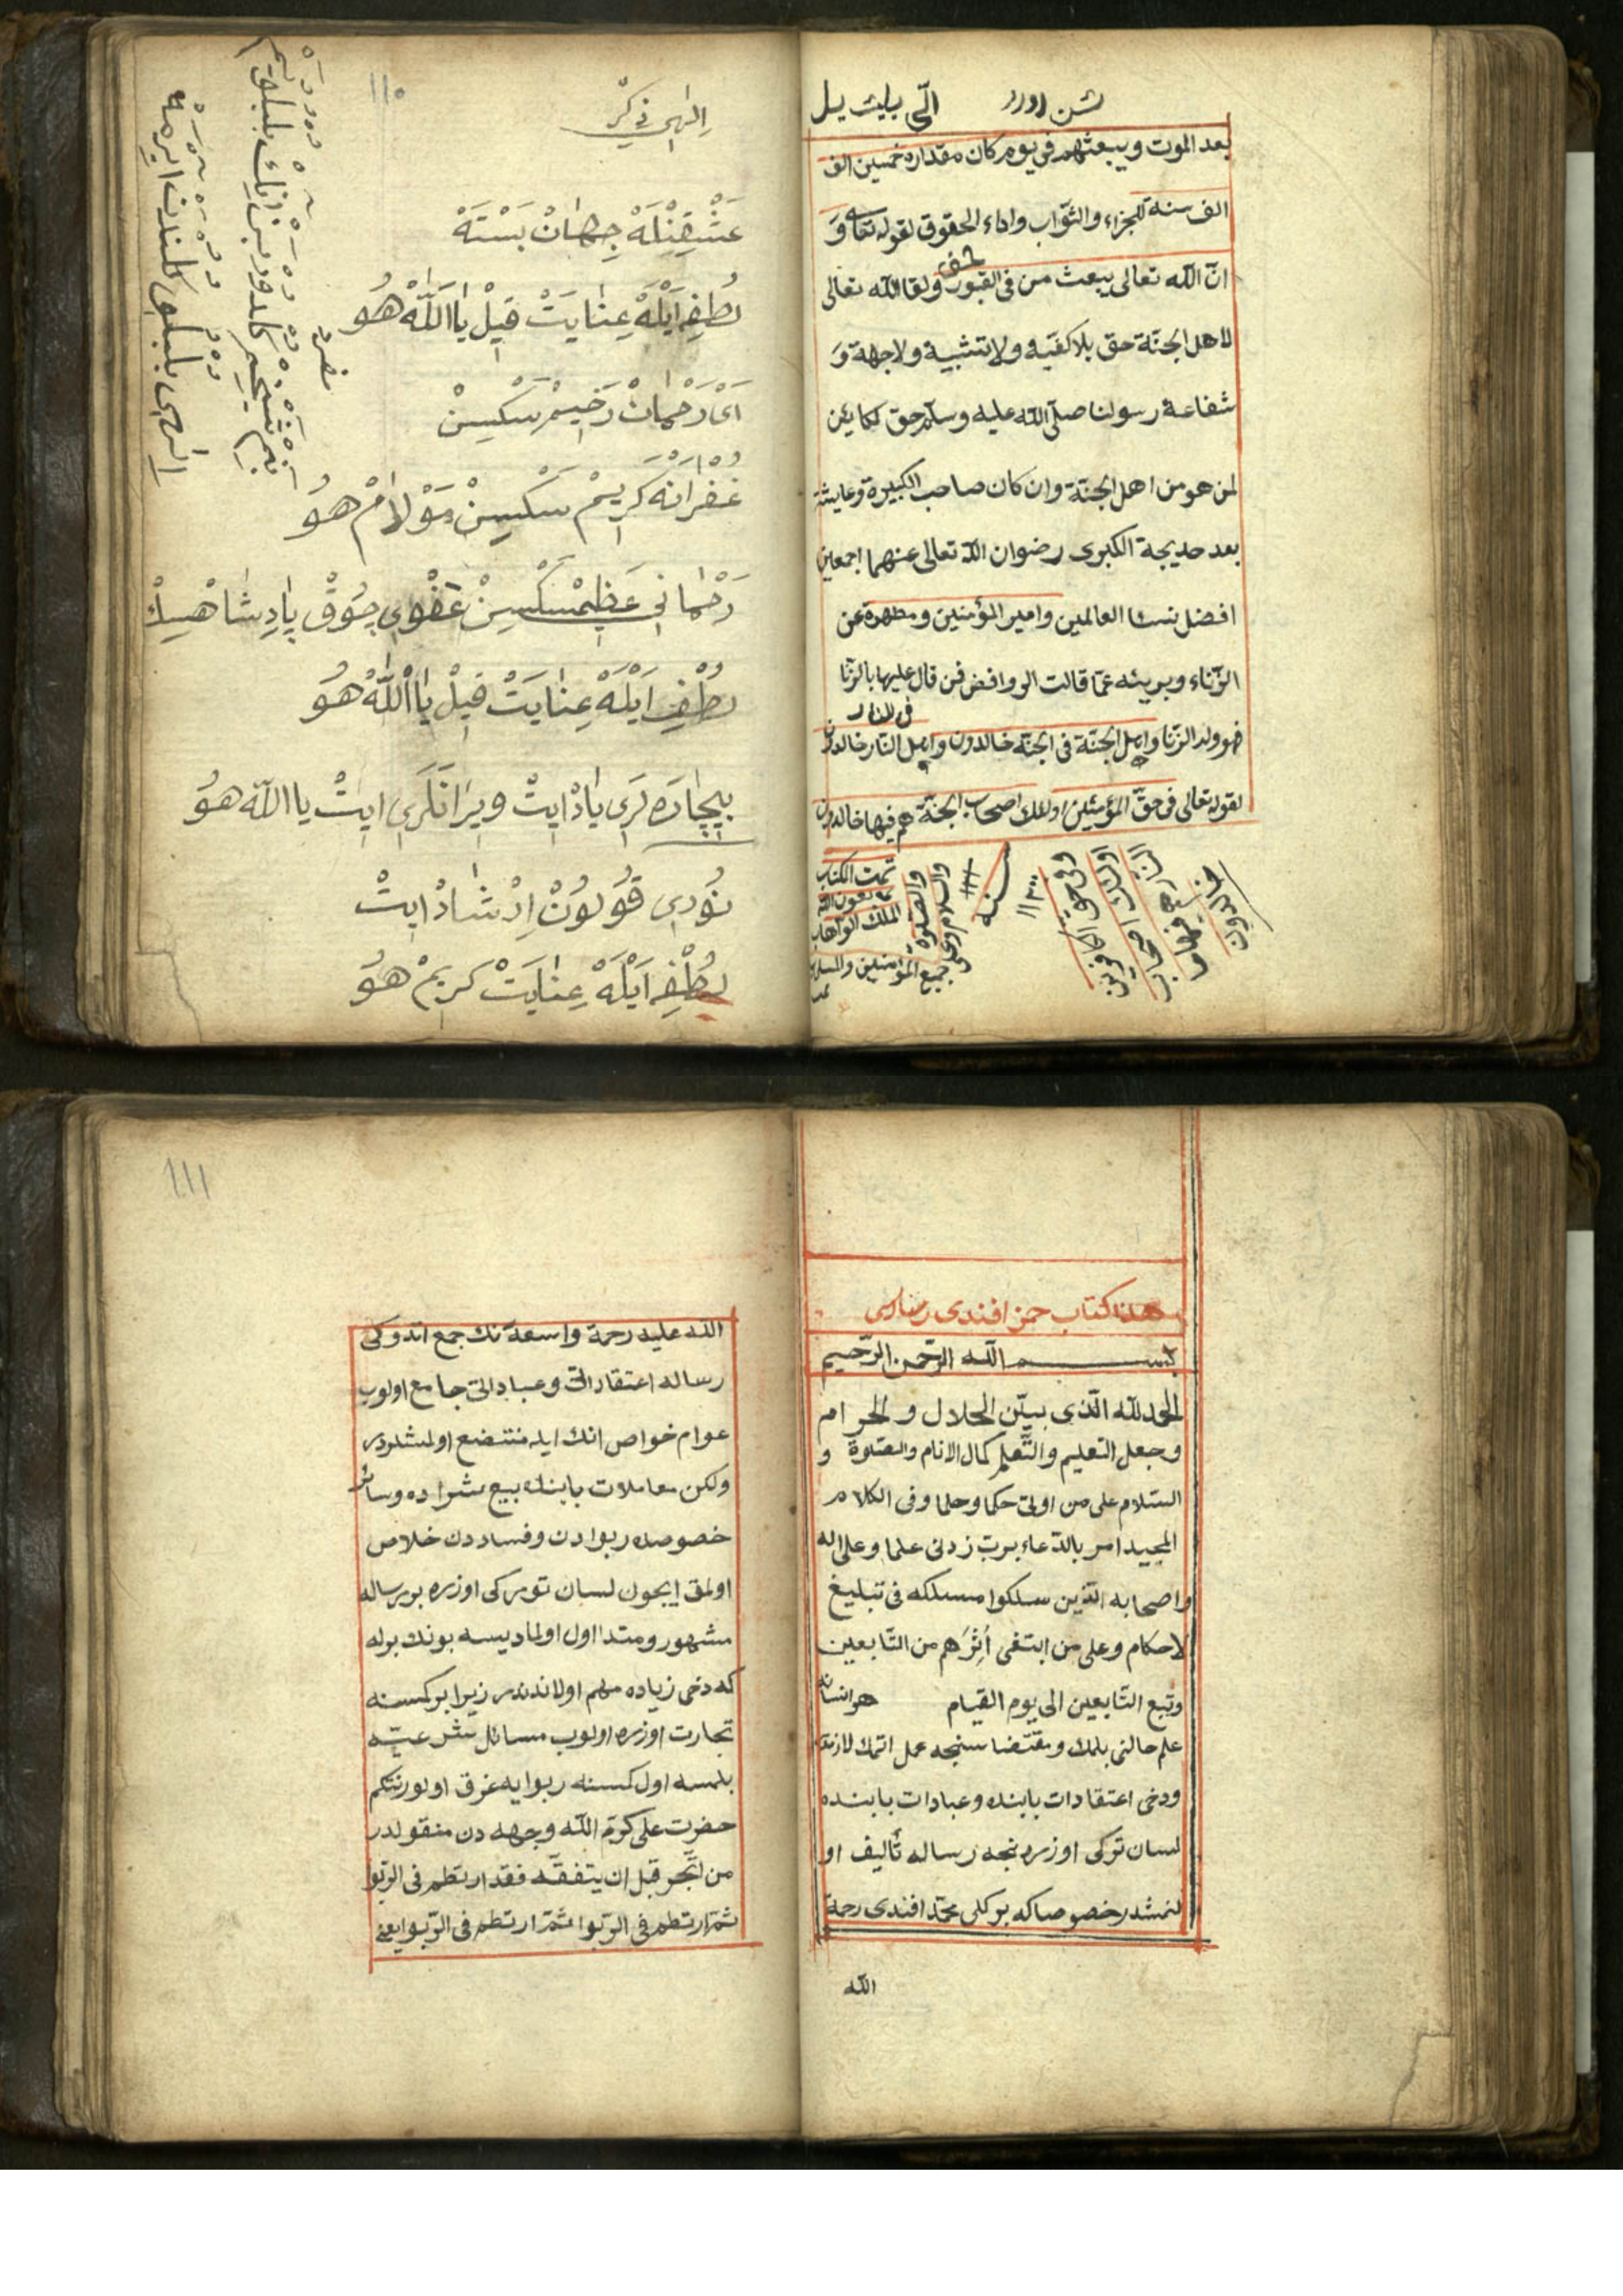 بعد الموت ويبعثهم فى يوم كان مقداره خمسين الف
الف سنة للجزاء والثواب واداء الحقوق لقوله تعالى و
انّ الله تعالى يبعث من فى القبور ولقا الله تعالى
حق
لاهل الجنّة حق بلا كفيّه ولا تشبية ولا جهة و
شفاعة رسولنا صلّى الله عليه وسلم حق لكاين
لمن هو من اهل الجنّة وان كان صاحب الكبيرة وعايشة
بعد خديجة الكبرى رضوان الله تعالى عنهما اجمعين
افضل نساء العالمين وامير المؤمنين ومطهرة عن
الزّناء وبريئه عمّا قالت الروافض فمن قال عليها بالزّنا
فى النار
فهو ولد الزّنا واهل الجنّة فى الجنّة خالدون واهل النّار خالدون
لقوله تعالى فى حقّ المؤمنين اولئك اصحاب الجنّة هم فيها خالدون
وفى حق الكافرين
اولئك اصحاب
النار هم فيها
خالدون
سنه
تمت الكتاب
بعون الله
الملك الوهاب
والصلوة
والسلام وعلى
جميع المؤمنين
١١٠
الهى ذكر
عَشْقِنْلَهْ جِهَانْ بَسْتَهْ
لُطْفِ اَيْلَهْ عِنَايَتْ قِيلْ يَا اَللّٰهْ هُو
اَىْ رَحْمَانْ رَحِيمْ سَكْسِنْ
غُفْرَانَه كَرِيمْ سَكْسِنْ مَوْلَامْ هُو
رَحْمَانِى عَظِيمْسَكْسِنْ عَفْوِى چُوقْ پَادِشَاهْسِكْ
لُطْفِ اَيْلَهْ عِنَايَتْ قِيلْ يَا اَللّٰهْ هُو
بِيچَارَه لَرِى يَادْ ايتْ وِيرَانَلَرِى ايتْ يا الله هُو
نُورِى قُولُونْ اِرْشَادْ ايتْ
لُطْفِ اَيْلَهْ عِنَايَتْ كَرِيمْ هُو
هذا كتاب حمزه افندى رساله سى
بسم الله الرّحمن الرّحيم
الحمد لله الّذى بيّن الحلال و الحرام
وجعل التعليم والتّعلم كمال الانام والصّلوة و
السّلام على من اوتى حكما وحلما وفى الكلام
المجيد امر بالدّعاء برب زدنى علما وعلى اله
واصحابه الّذين سلكوا مسلكه فى تبليغ
لاحكام وعلى من ابتغى أثرهم من التّابعين
وتبع التّابعين الى يوم القيام هر انسانه
علم حالنى بلمك و مقتضا سنجه عمل اتمك لازمدر
ودخى اعتقادات بابنده وعبادات بابنده
لسان تركى اوزره نجه رساله تأليف او
لنمشدر خصوصا كه بركلى محمّد افندى رحمة
الله
١١١
الله عليه رحمة واسعة نك جمع اتدوكى
رساله اعتقاداتى وعباداتى جامع اولوب
عوام خواص انك ايله منتفع اولمشلردر
ولكن معاملات بابنده بيع شراده وسائر
خصوصده ربوادن وفساددن خلاص
اولمق ايچون لسان توركى اوزره بر رساله
مشهور ومتداول اولماديسه بونك برله
كه دخى زياده مهم اولاندندر زيرا بر كمسنه
تجارت اوزره اولوب مسائل شرعيّه
بلمسه اول كمسنه ربوايه غرق اولور نتكم
حضرت على كرّم الله وجهه دن منقولدر
من اتّجر قبل ان يتفقّه فقد ارتطم فى الرّبوا
ثمّ ارتطم فى الرّبوا ثمّ ارتطم فى الرّبوا يعنى